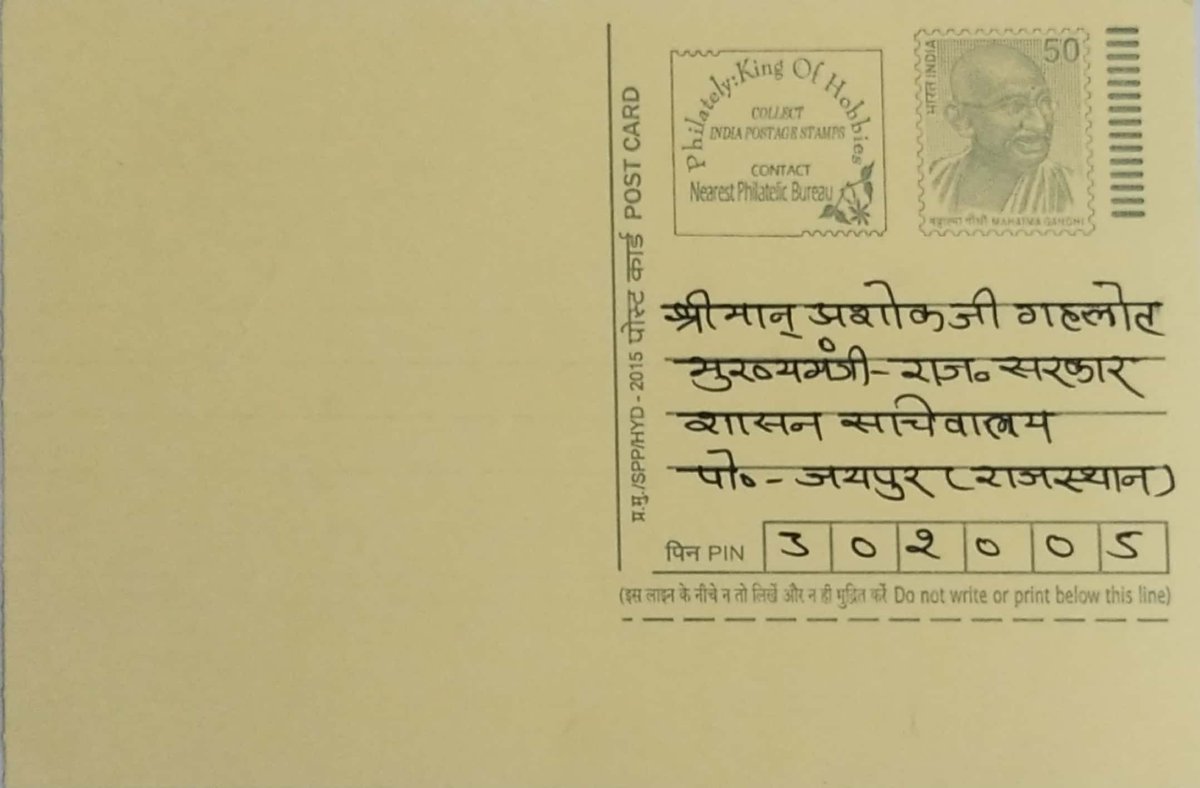 Philately:King Of Hobbies
COLLECT
INDIA POSTAGE STAMPS
CONTACT
Nearest Philatelic Bureau
भारत INDIA
50
महात्मा गाँधी MAHATMA GANDHI
प्र.मु./SPP/HYD - 2015 पोस्ट कार्ड POST CARD
श्रीमान् अशोकजी गहलोत
मुख्यमंत्री- राज॰ सरकार
शासन सचिवालय
पो॰- जयपुर (राजस्थान)
पिन PIN 302005
(इस लाइन के नीचे न तो लिखें और न ही मुद्रित करें Do not write or print below this line)